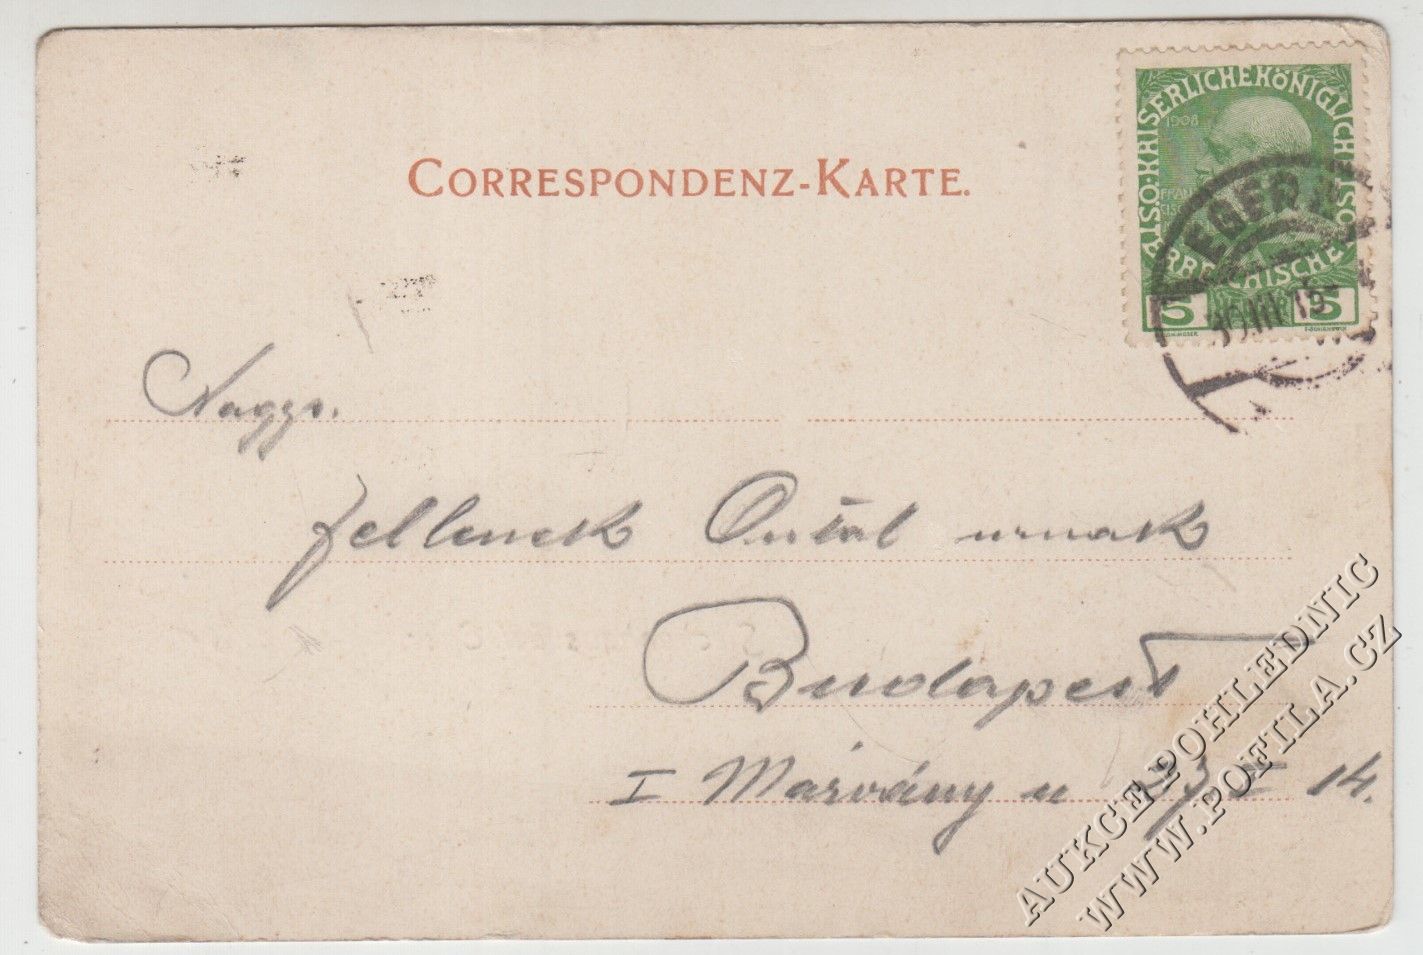 CORRESPONDENZ-KARTE.
KAISERLICHE KÖNIGLICHE
1908
ÖSTERREICHISCHE
5 5
EGER
10 III
Nagys.
Jellenek Antal urnak
Budapest
I Márvány u 23 14.
AUKCE POHLEDNIC
WWW.POFILA.CZ